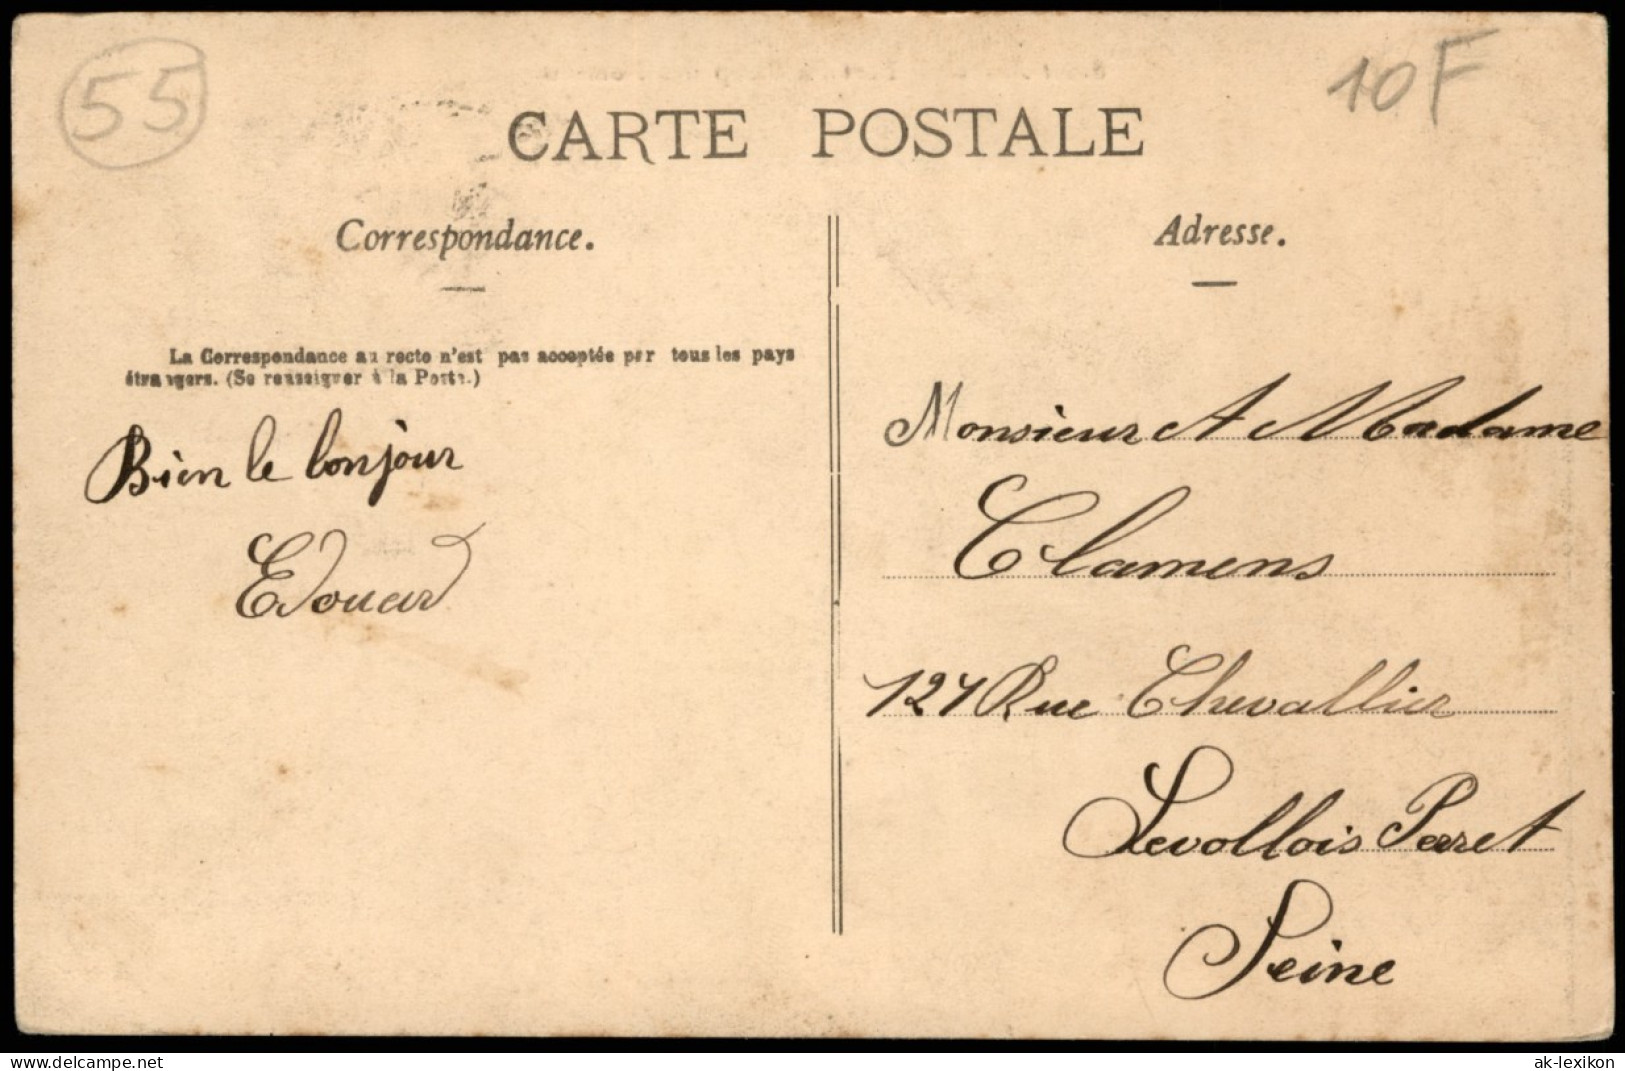 55
10F
CARTE POSTALE
Correspondance.
Adresse.
La Correspondance au recto n'est pas acceptée par tous les pays
étrangers. (Se renseigner à la Poste.)
Bien le bonjour
Edouard
Monsieur et Madame
Clamens
127 Rue Chevallier
Levollois Perret
Seine
www.delcampe.net
ak-lexikon